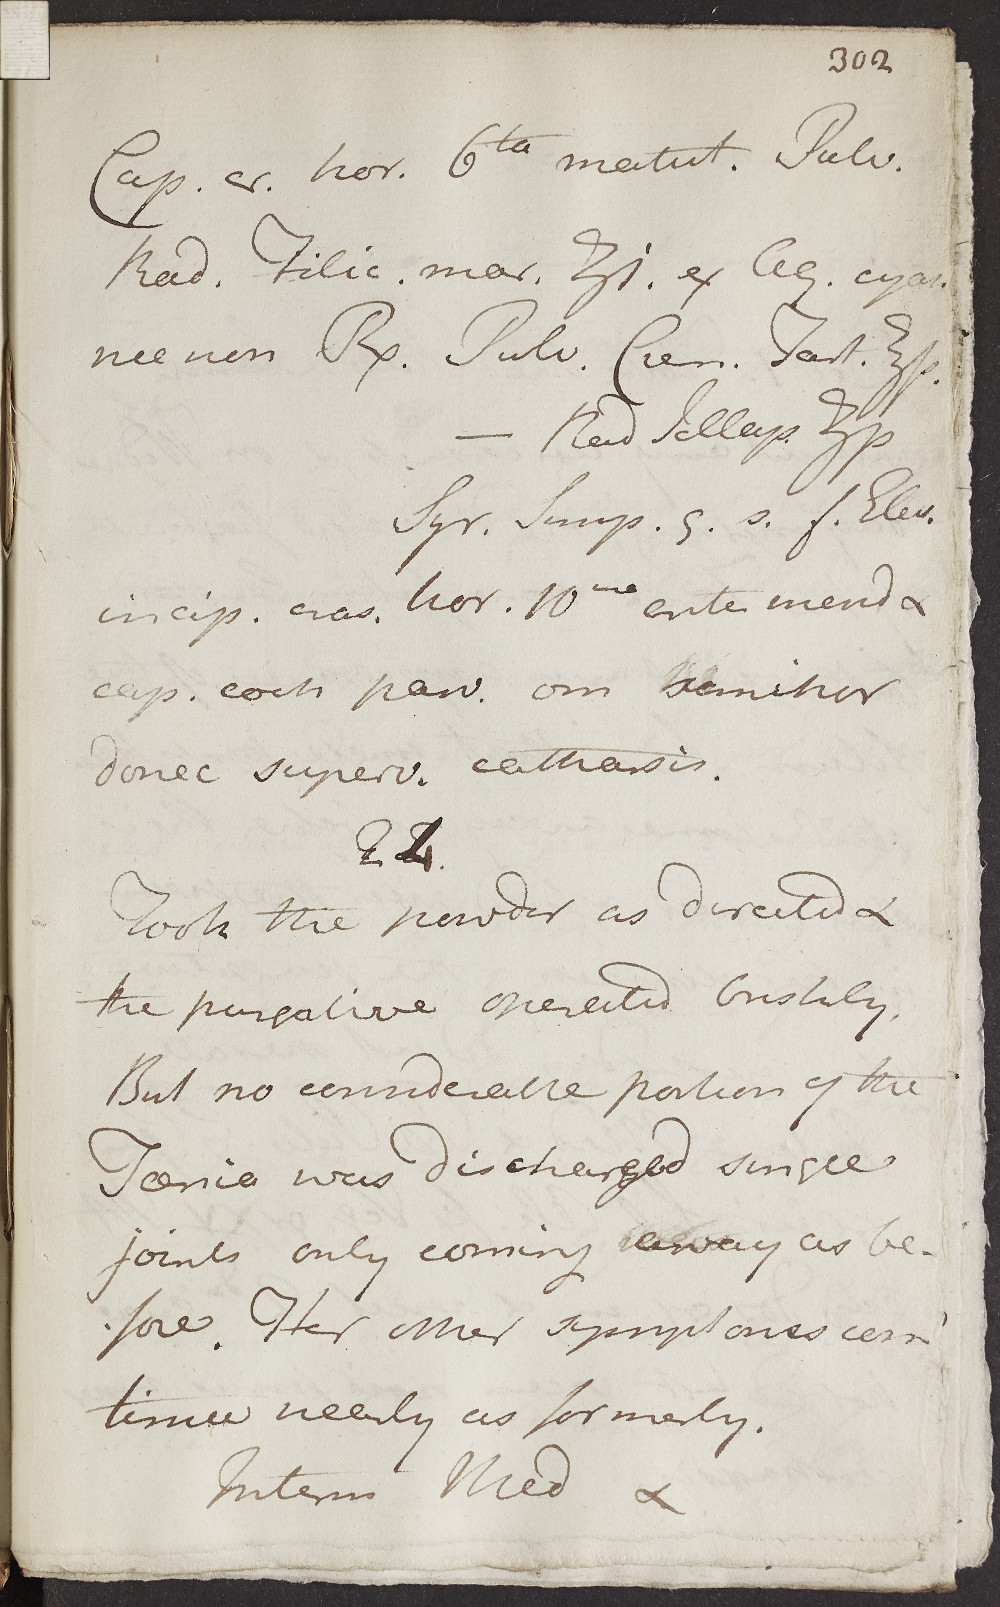 302
Cap. cr. hor. 6ta matut. Pulv.
Rad. Filic. mar. ʒj. ex Aq. cyat.
nec non Rx. Pulv. Crem. Tart. ʒß.
— Rad Jallap. ʒß
Syr. Simp. q. s. f. Elec.
incip. cras. hor. 10ma ante merid &
cap. coch parv. om semihor
donec superv. catharsis.
24.
Took the powder as directed &
the purgative operated briskly.
But no considerable portion of the
Tænia was discharged single
joints only coming away as be-
fore. Her other symptoms con
tinue nearly as formerly.
Interm Med &